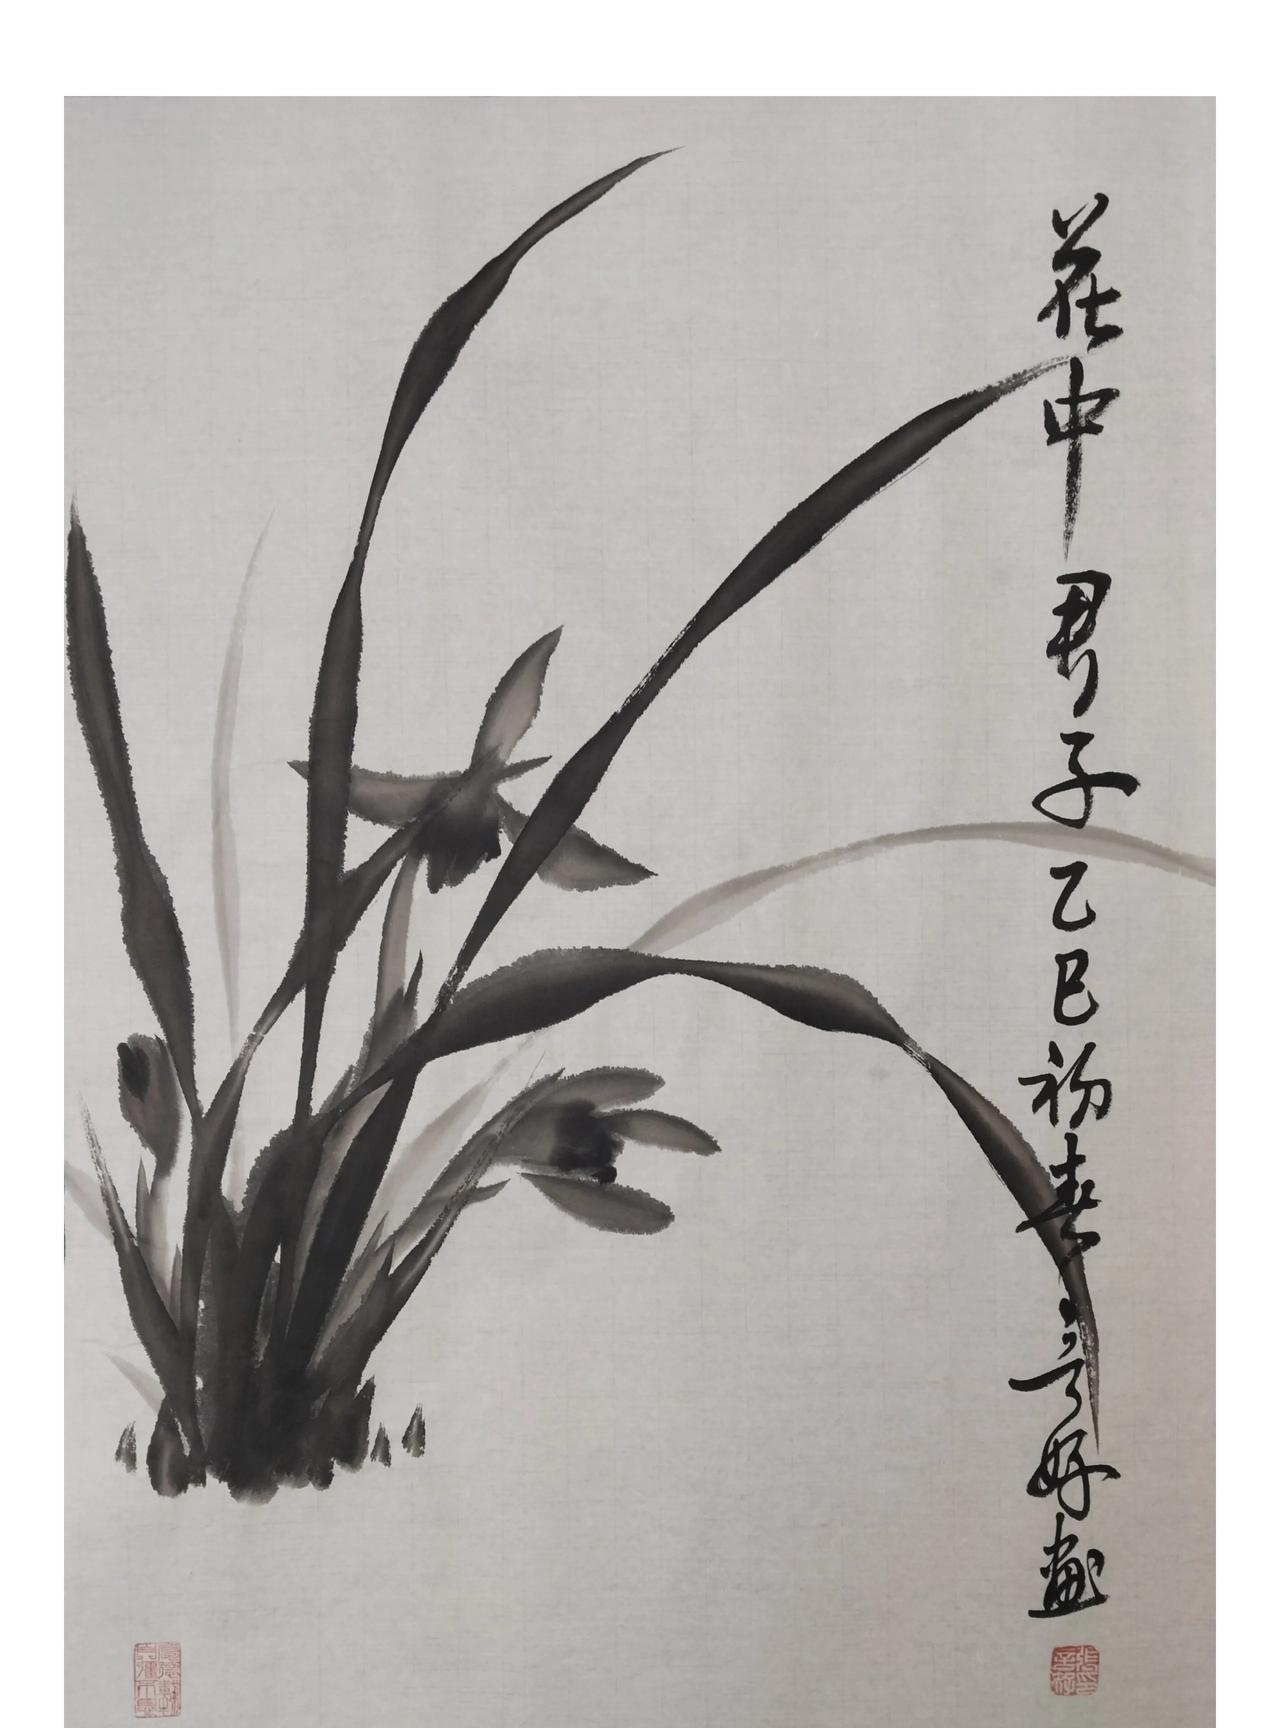 花中君子乙巳初春言好畫